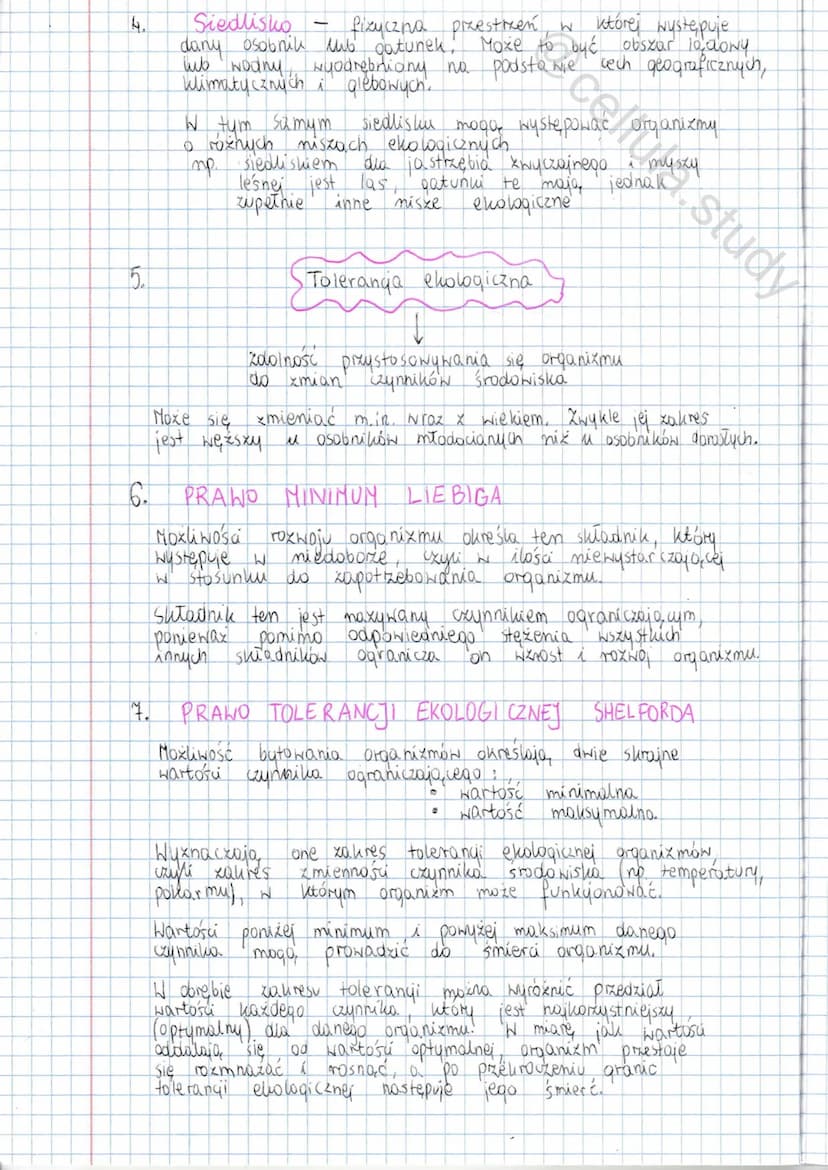 4. Siedlisko – fizyczna przestrzeń w której występuje
dany osobnik lub gatunek. Może to być obszar lądowy
lub wodny, wyodrębniony na podstawie cech geograficznych,
klimatycznych i glebowych.
W tym samym siedlisku mogą występować organizmy
o różnych niszach ekologicznych
np. siedliskiem dla jastrzębia zwyczajnego i myszy
leśnej jest las, gatunki te mają jednak
zupełnie inne nisze ekologiczne
@cellula.study
5. Tolerancja ekologiczna
↓
zdolność przystosowywania się organizmu
do zmian czynników środowiska
Może się zmieniać m.in. wraz z wiekiem. Zwykle jej zakres
jest węższy u osobników młodocianych niż u osobników dorosłych.
6. PRAWO MINIMUM LIEBIGA
Możliwości rozwoju organizmu określa ten składnik, który
występuje w niedoborze, czyli w ilości niewystarczającej
w stosunku do zapotrzebowania organizmu.
Składnik ten jest nazywany czynnikiem ograniczającym,
ponieważ pomimo odpowiedniego stężenia wszystkich
innych składników ogranicza on wzrost i rozwój organizmu.
7. PRAWO TOLERANCJI EKOLOGICZNEJ SHELFORDA
Możliwość bytowania organizmów określają dwie skrajne
wartości czynnika ograniczającego:
• wartość minimalna
• wartość maksymalna
Wyznaczają one zakres tolerancji ekologicznej organizmów,
czyli zakres zmienności czynnika środowiska (np. temperatury,
pokarmu), w którym organizm może funkcjonować.
Wartości poniżej minimum i powyżej maksimum danego
czynnika mogą prowadzić do śmierci organizmu.
W obrębie zakresu tolerancji można wyróżnić przedział
wartości każdego czynnika, który jest najkorzystniejszy
(optymalny) dla danego organizmu. W miarę jak wartości
oddalają się od wartości optymalnej, organizm przestaje
się rozmnażać i rosnąć, a po przekroczeniu granic
tolerancji ekologicznej następuje jego śmierć.